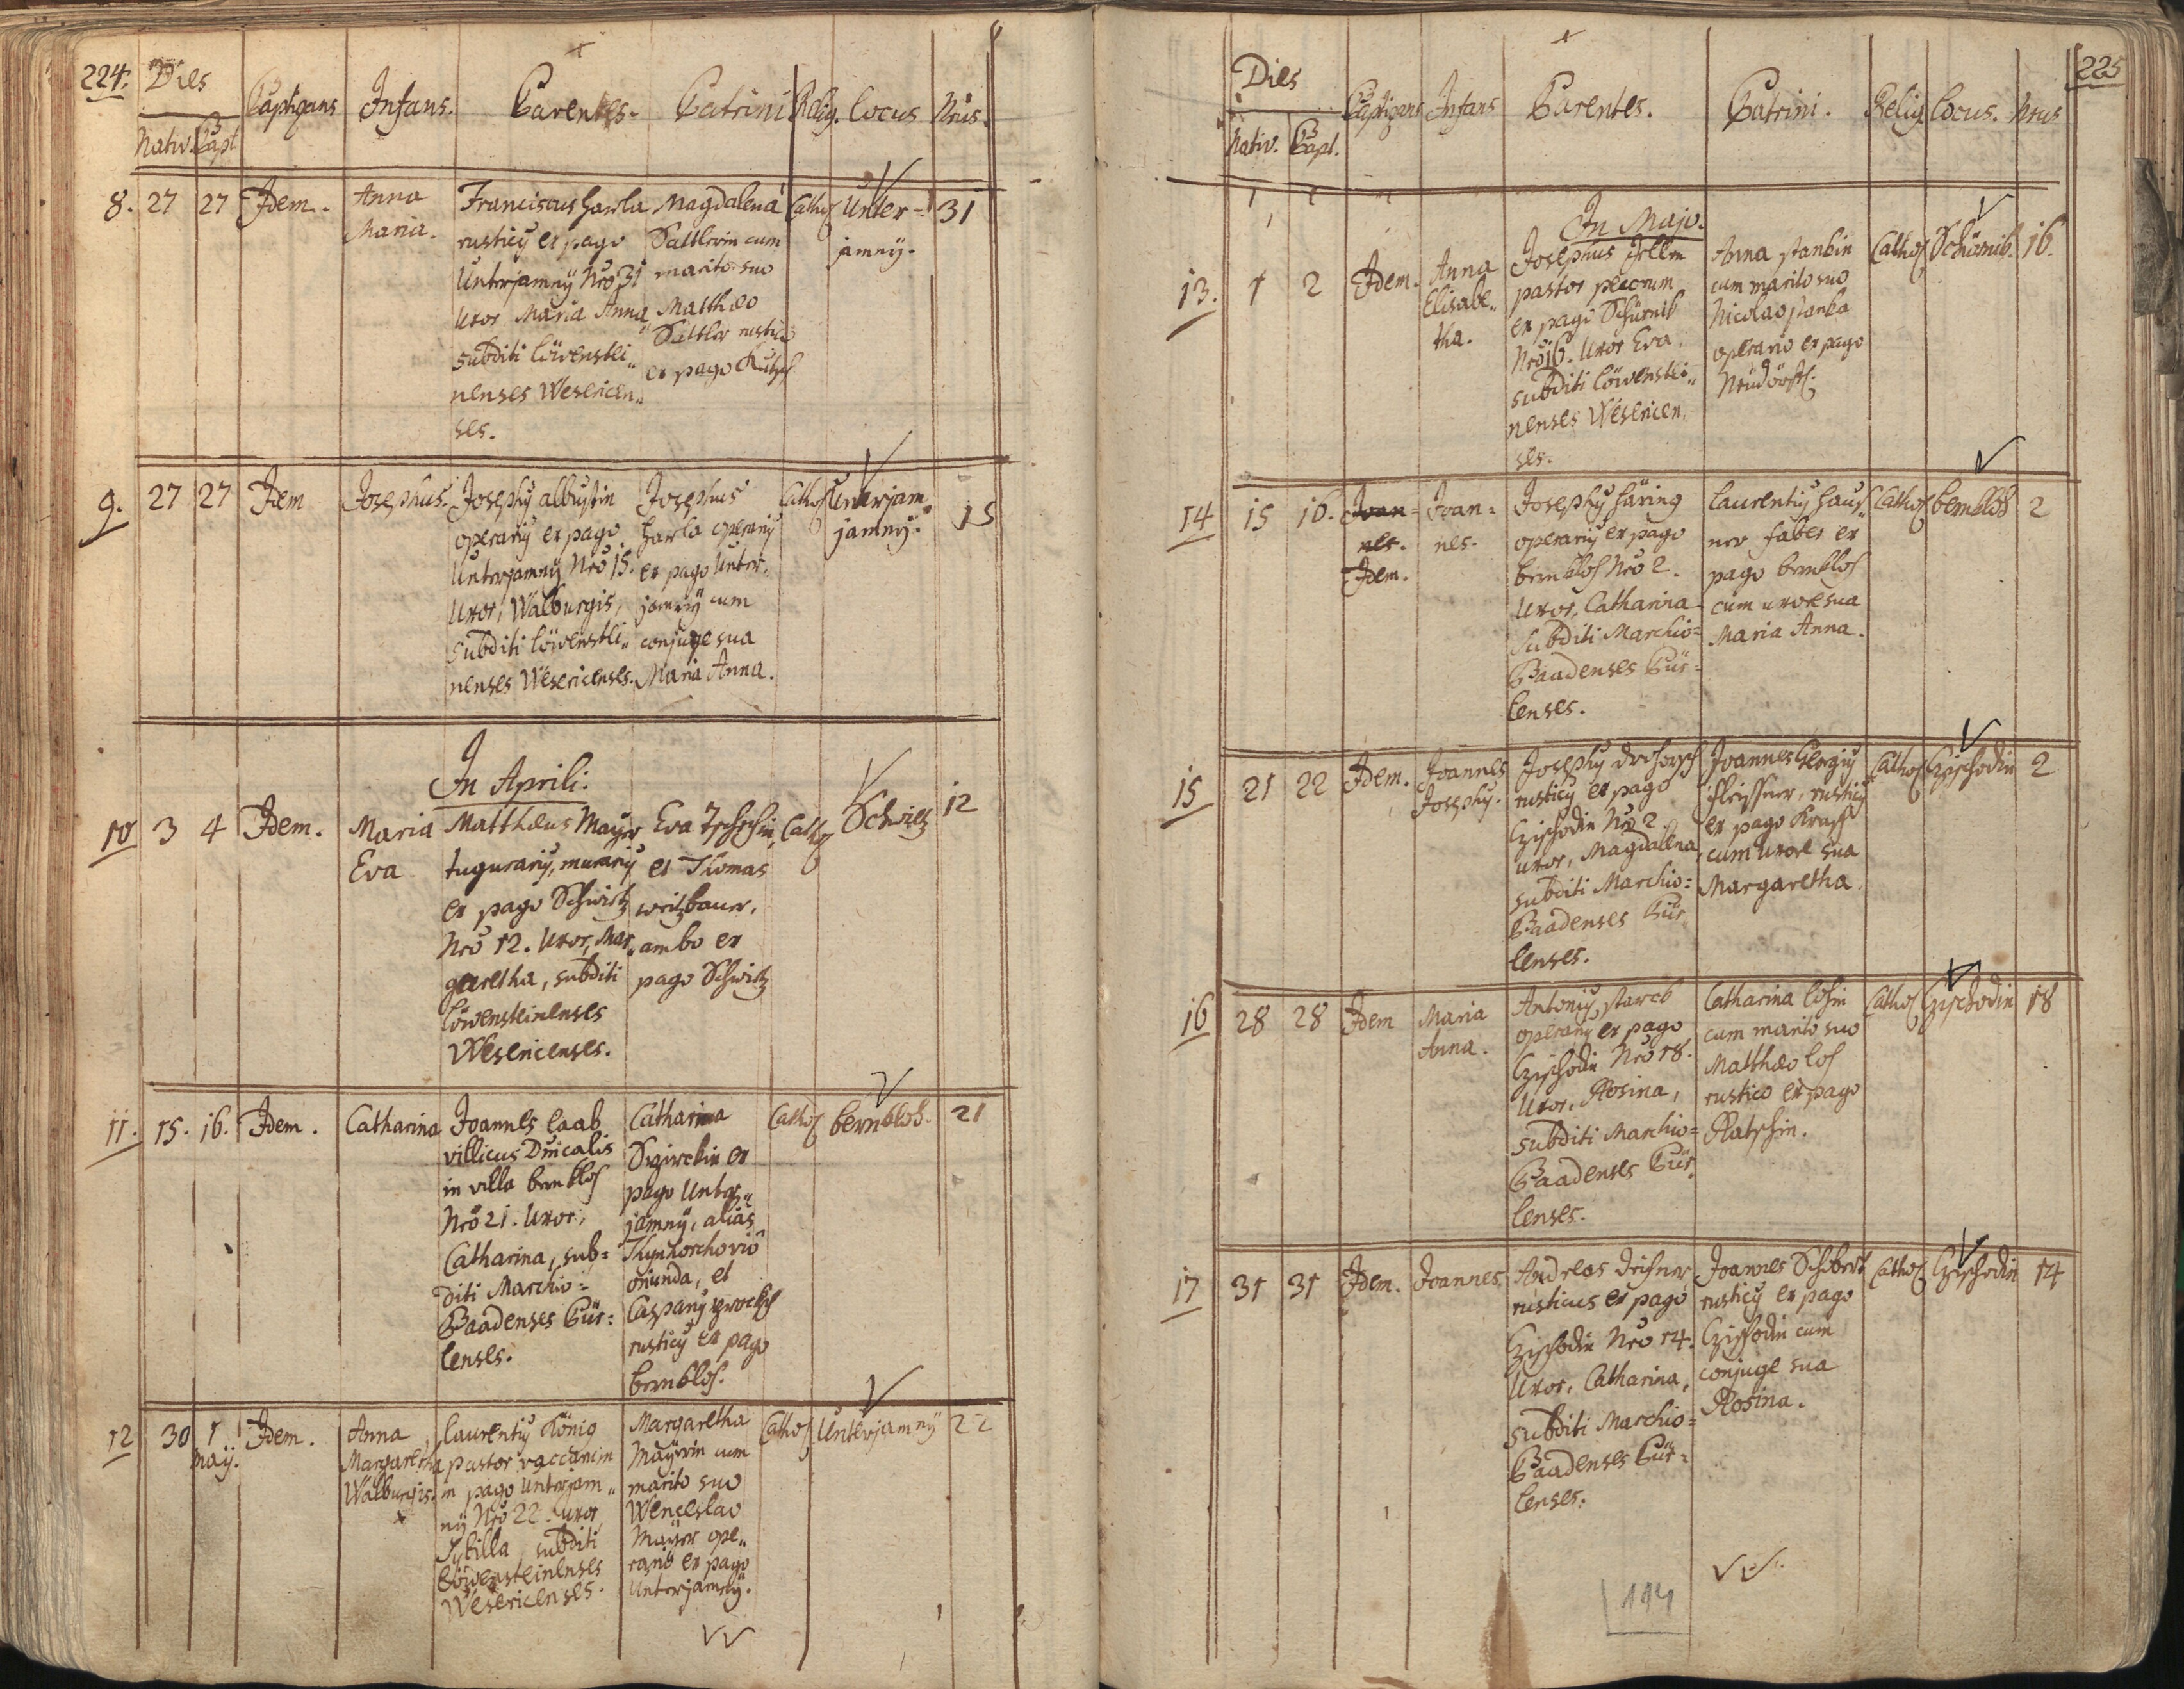 224.
Dies
Nativ. Bapt
Baptizans
Infans.
Parentes.
Patrini
Relig.
Locus
Nrus.
8.
27
27
Idem.
Anna
Maria.
Franciscus Harla
rusticy ex pago
Unterjamnÿ Nro 31
Uxor Maria Anna
subditi Löwenstei„
nenses Wesericen„
ses.
Magdalena
Sattlerin cum
marito suo
Matthæo
Sattler rustico
ex pago
Cathol
Unter-
jamnÿ.
31
9.
27
27
Idem
Josephus.
Josephy
operariy ex pago
Unterjamnÿ Nro 15.
Uxor, Walburgis,
subditi Löwenstei„
nenses Wesericenses.
Josephus
Harla operariy
ex pago Unter„
jamnÿ cum
conjuge sua
Maria Anna.
Cathol
Unterjam„
jamnÿ.
15
In Aprili.
10
3
4
Idem.
Maria
Eva
Matthæus Mayer
tugurariy, murariy
ex pago Schwitz
Nro 12. Uxor, Mar„
garetha, subditi
Löwensteinenses
Wesericenses.
Eva
et Thomas
weitzbauer,
ambo ex
pago Schwitz
Cathol
Schwitz
12
11.
15.
16.
Idem.
Catharina
Joannes Laab
villicus Dnicalis
in villa bernklos
Nro 21. Uxor,
Catharina, sub=
diti Marchio=
Baadenses Gür=
lenses.
Catharina
ex
pago Unter„
jamnÿ, alias
oriunda, et
Caspary
rusticy ex pago
bernklos.
Cathol
bernklos.
21
12
30
1
Maÿ.
Idem.
Anna
Margaretha
Walburgis.
Laurentiy König
pastor vaccarum
in pago Unterjam„
nÿ Nro 22. uxor,
Sybilla, subditi
Löwensteinenses
Wesericenses.
Margaretha
Maÿrin cum
marito suo
Wenceslao
Maÿer ope„
rario ex pago
Unterjamnÿ.
Cathol
Unterjamnÿ
22
225
Dies
Nativ. Bapt.
Baptizans
Infans
Parentes.
Patrini.
Relig.
Locus.
Nrus
In Majo.
13.
1
2
Idem.
Anna
Elisabe„
tha.
Josephus
pastor pecorum
ex pagi Schürnik
Nro 16. Uxor Eva,
subditi Löwenstei„
nenses Wesericen„
ses.
Anna Stankin
cum marito suo
Nicolao Stanka
operario ex pago
Neüdörfl.
Cathol
Schürnik.
16.
14
15
16.
Joan=
nes.
Idem.
Joan=
nes.
Josephy Häring
operariy ex pago
bernklos Nro 2.
Uxor, Catharina
Subditi Marchio=
Baadenses Gür=
lenses.
Laurentiy Haus„
ner faber ex
pago bernklos
cum uxore sua
Maria Anna.
Cathol
bernklos
2
15
21
22
Idem.
Joannes
Josephy.
Josephy
rusticy ex pago
Czischodin Nro 2.
uxor, Magdalena,
subditi Marchio=
Baadenses Gür„
lenses.
Joannes Georgiy
fleissner, rusticy
ex pago Krasch
cum uxore sua
Margaretha.
Cathol
Czischodin
2
16
28
28
Idem
Maria
Anna.
Antoniy Starck
operariy ex pago
Czischodin Nro 18.
Uxor, Rosina,
subditi Marchio=
Baadenses Gür„
lenses.
Catharina Losin
cum marito suo
Matthæo Los
rustico ex pago
Ratschin.
Cathol
Czischodin
18
17
31
31
Idem.
Joannes.
Andreas
rusticus ex pago
Czischodin Nro 14.
Uxor, Catharina,
subditi Marchio=
Baadenses Gür=
lenses.
Joannes Schobert
rusticy ex pago
Czischodin cum
conjuge sua
Rosina.
Cathol
Czischodin
14
114